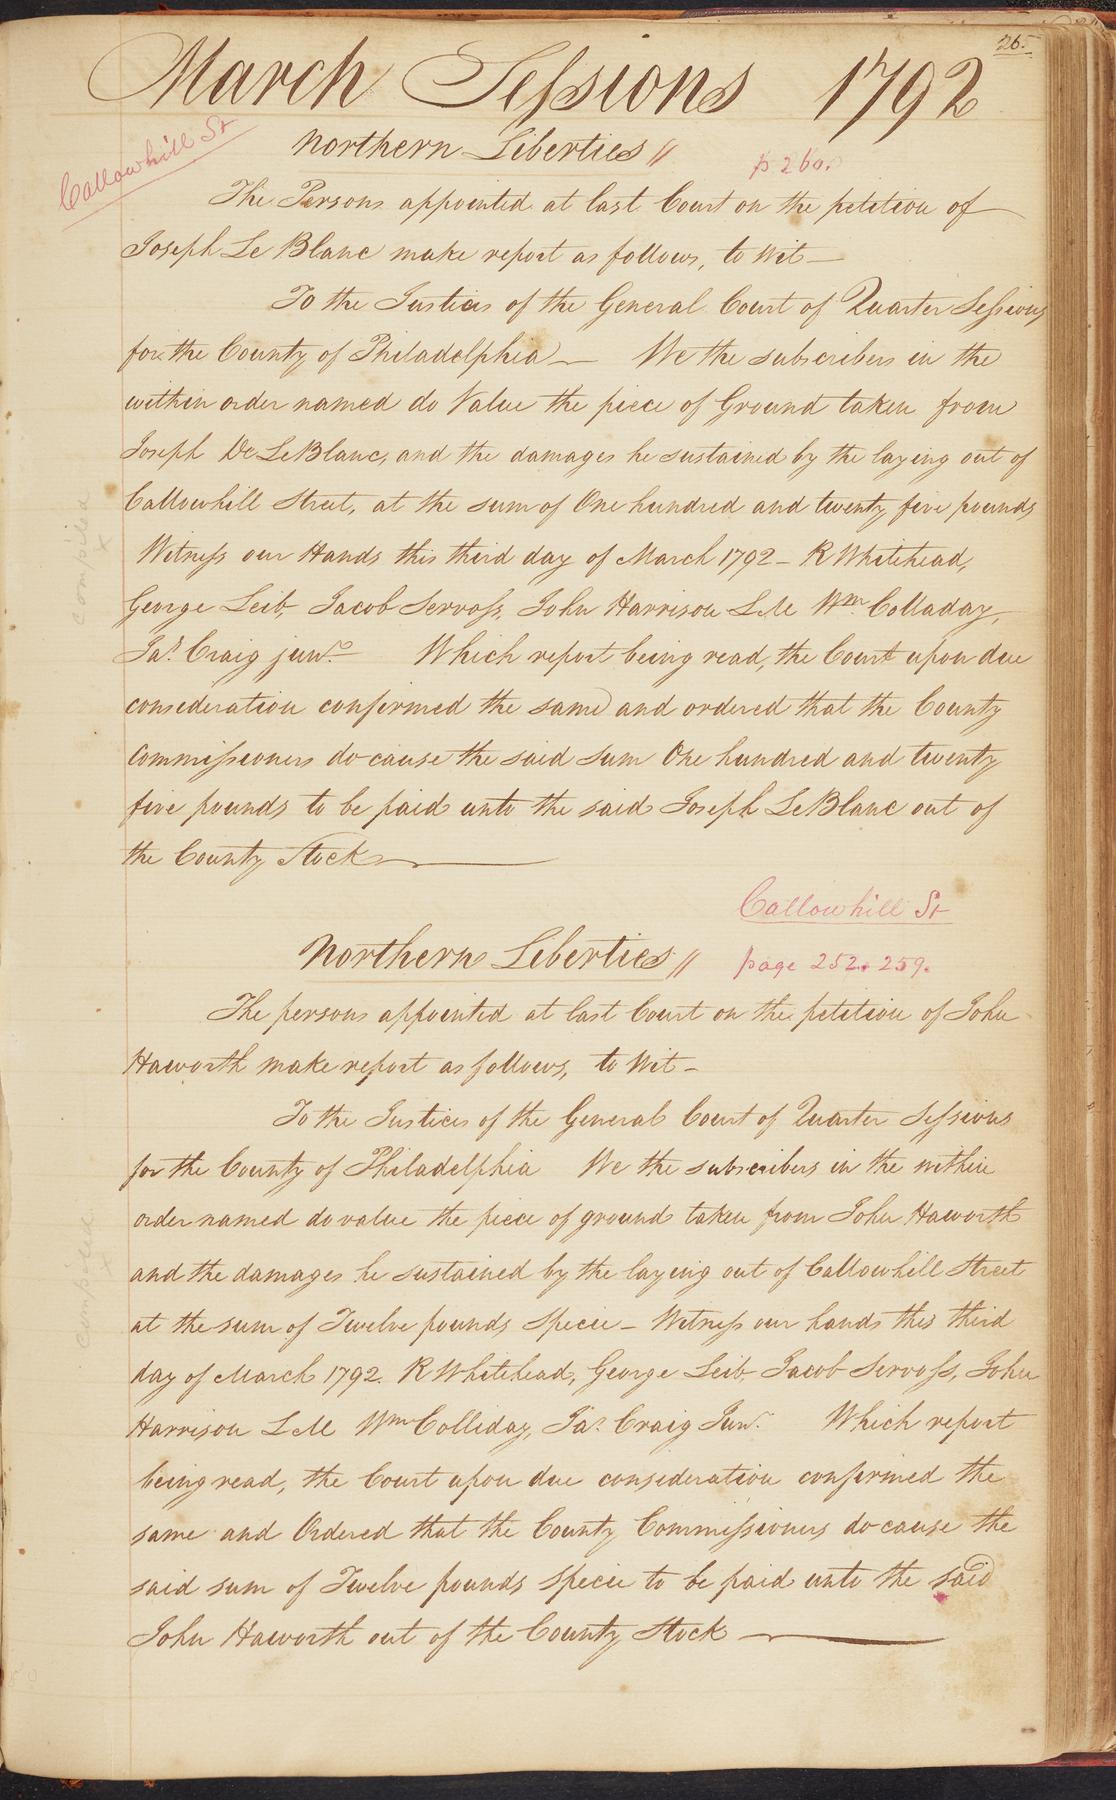 265
March Sessions 1792
Callowhill St
Northern Liberties //
p 260.
The Persons appointed at last Court on the petition of
Joseph Le Blanc make report as follows, to Wit—
To the Justices of the General Court of Quarter Sessions
for the County of Philadelphia— We the subscribers in the
within order named do Value the piece of Ground taken from
Joseph De LeBlanc, and the damages he sustained by the laying out of
Callowhill Street, at the sum of One hundred and twenty five pounds
Witness our Hands this third day of March 1792— R Whitehead,
George Leib, Jacob Servoss, John Harrison L M Wm Colladay,
Jas. Craig junr. Which report being read, the Court upon due
consideration confirmed the same and ordered that the County
Commissioners do cause the said sum One hundred and twenty
five pounds to be paid unto the said Joseph LeBlanc out of
the County Stock—
Callowhill St
Northern Liberties //
page 252. 259.
The persons appointed at last Court on the petition of John
Haworth make report as follows, to Wit—
To the Justices of the General Court of Quarter Sessions
for the County of Philadelphia We the subscribers in the within
order named do value the piece of ground taken from John Haworth
and the damages he sustained by the laying out of Callowhill Street
at the sum of Twelve pounds Specie— Witness our hands this third
day of March 1792. R Whitehead, George Leib, Jacob Servoss, John
Harrison L M Wm Colliday, Jas. Craig Junr. Which report
being read, the Court upon due consideration confirmed the
same and Ordered that the County Commissioners do cause the
said sum of Twelve pounds Specie to be paid unto the said
John Haworth out of the County Stock—
compiled
x
compiled